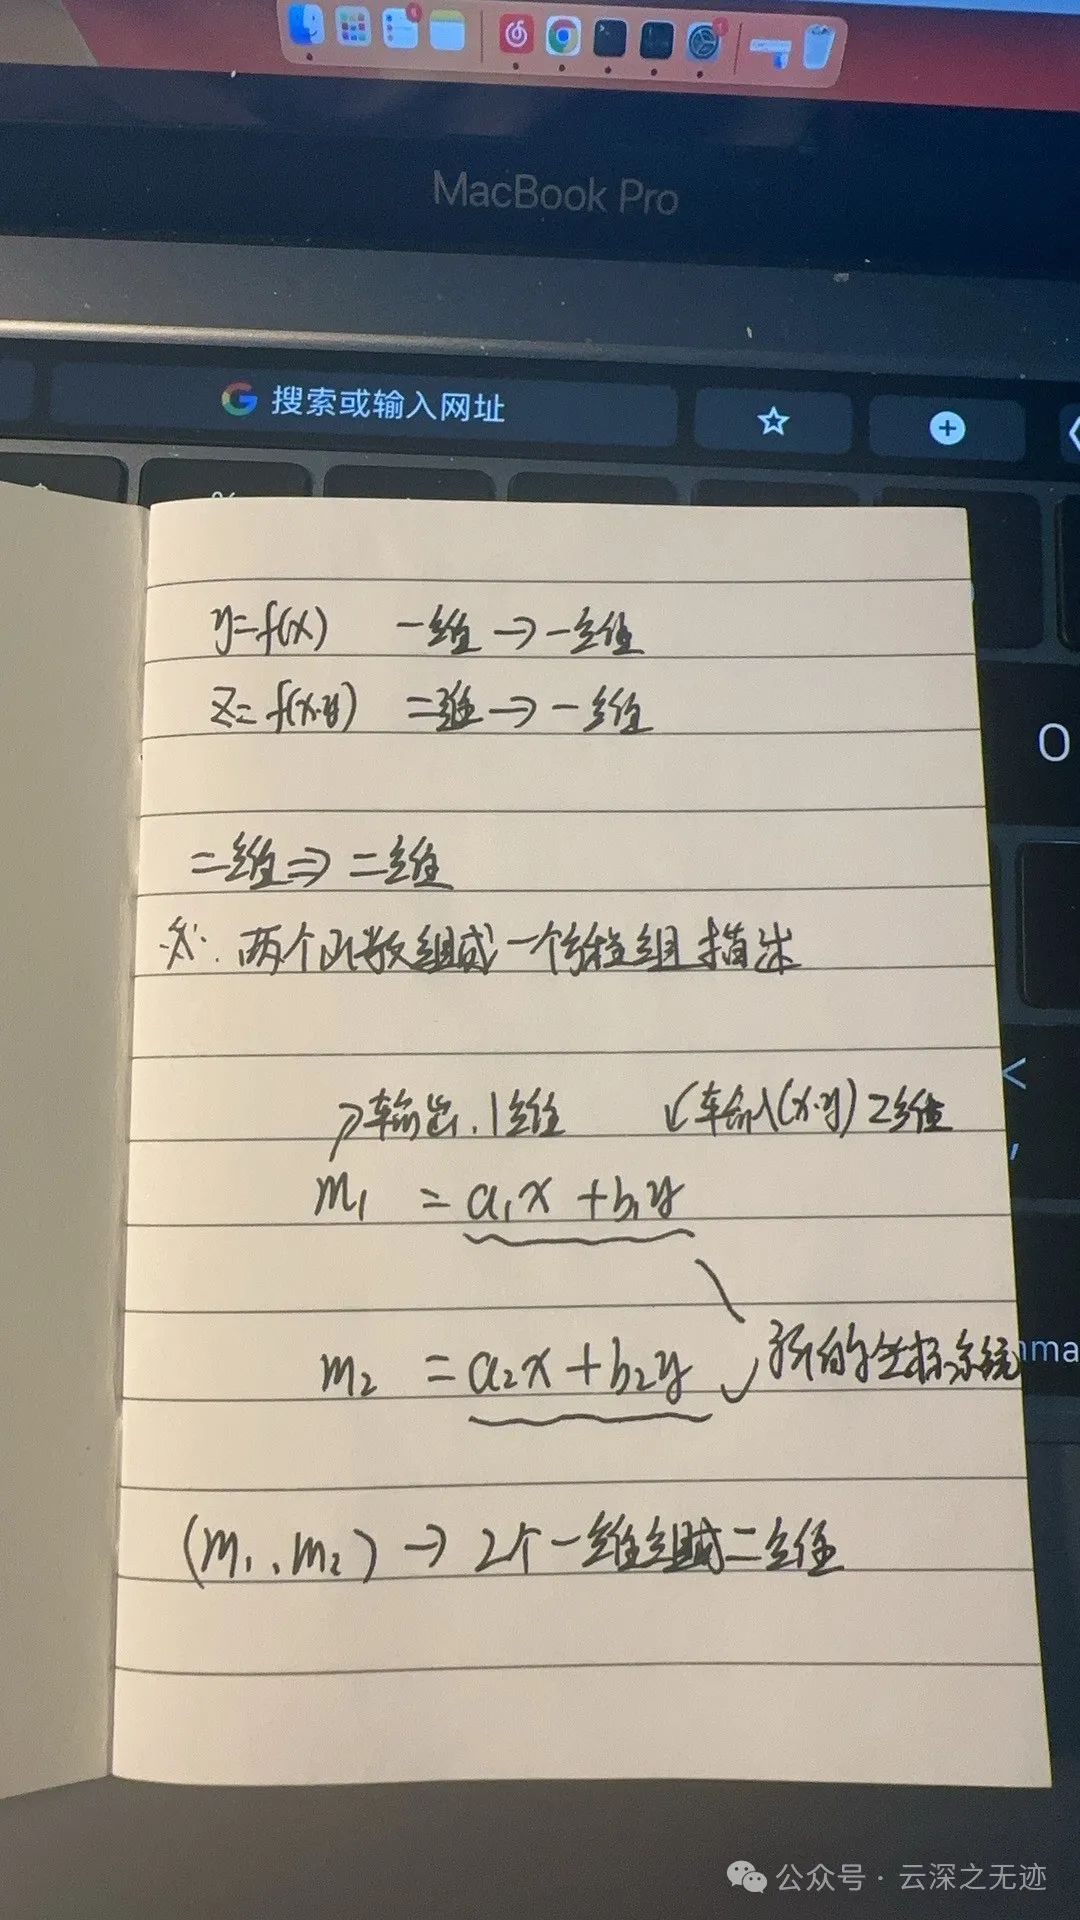 MacBook Pro
搜索或输入网址
%
O
<
,
mma
y=f(x) 一维→一维
z=f(x.y) 二维→一维
二维⇒二维
关: 两个函数组成一个方程组描述
↗输出.1维 ↙输入(x.y)2维
m₁ = a₁x + b₁y
m₂ = a₂x + b₂y
新的坐标系统
(m₁、m₂) → 2个一维组成二维
公众号 · 云深之无迹